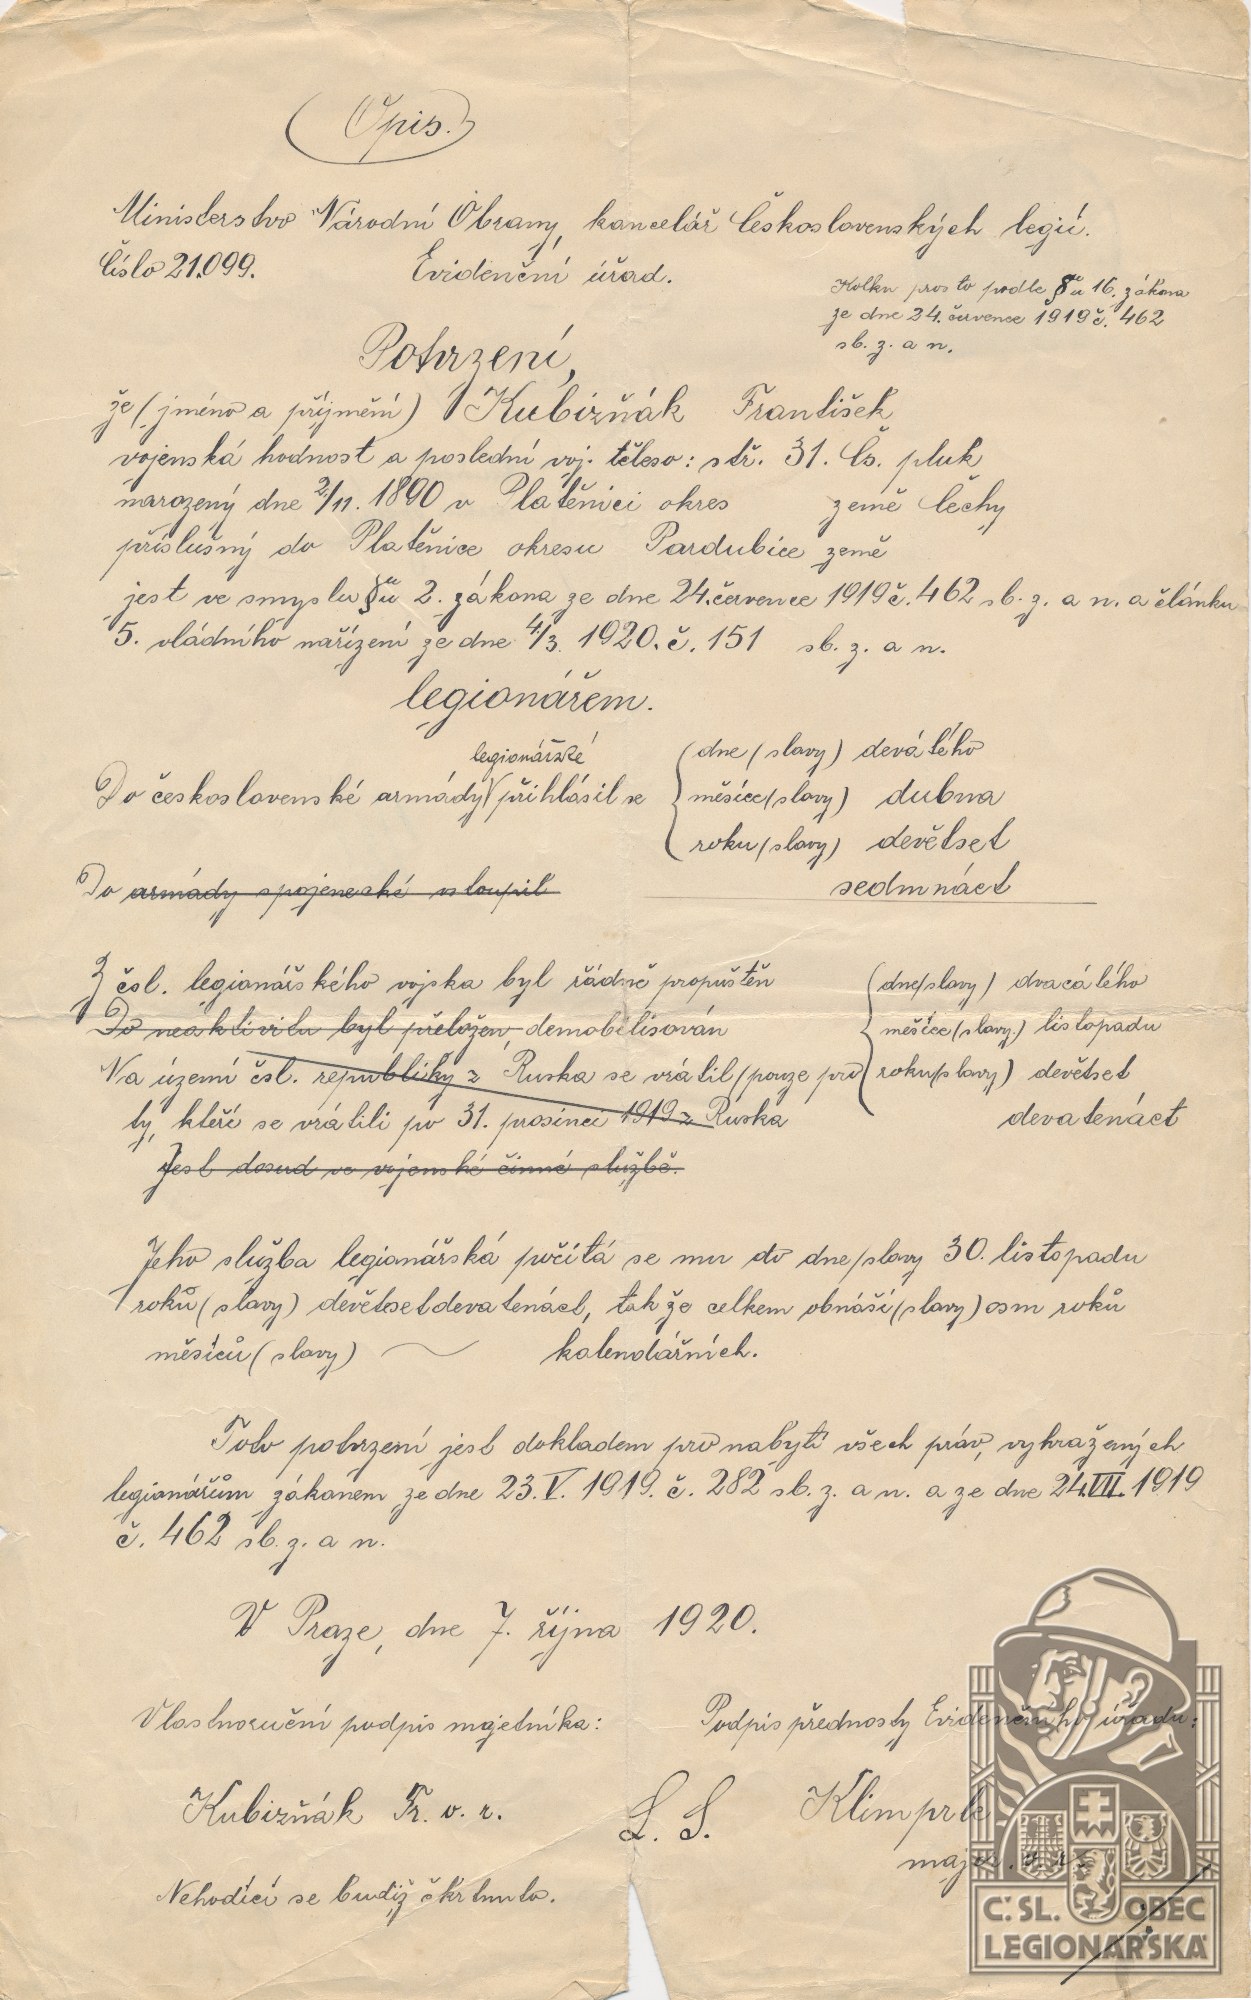 (Opis.)
Ministerstvo Národní Obrany, kancelář Československých legií.
Číslo 21.099. Evidenční úřad.
Kolku prosto podle §u 16. zákona
ze dne 24. července 1919 č. 462
sb. z. a n.
Potvrzení,
že (jméno a příjmění) Kubizňák František
vojenská hodnost a poslední voj. těleso: stř. 31. Čs. pluk
narozený dne 2/11. 1890 v Platěnici okres země Čechy
příslušný do Platěnice okresu Pardubice země
jest ve smyslu §u 2. zákona ze dne 24. července 1919 č. 462 sb. z. a n. a článku
5. vládního nařízení ze dne 4/3. 1920. č. 151 sb. z. a n.
legionářem.
legionářské
Do československé armády přihlásil se
dne (slovy) devátého
měsíce (slovy) dubna
roku (slovy) devětset
sedmnáct
Do armády spojenecké vstoupil
Z čsl. legionářského vojska byl řádně propuštěn
Do neaktivitu byl přeložen, demobilisován
Na území čsl. republiky z Ruska se vrátil (pouze pro
ty, kteří se vrátili po 31. prosinci 1919 z Ruska
dne (slovy) dvacátého
měsíce (slovy.) listopadu
roku (slovy) devětset
devatenáct
Jest dosud ve vojenské činné službě.
Jeho služba legionářská počítá se mu do dne/slovy 30. listopadu
roků (slovy) devětsetdevatenáct, takže celkem obnáší (slovy) osm roků
měsíců (slovy) kalendářních.
Toto potvrzení jest dokladem pro nabytí všech práv, vyhražených
legionářům zákonem ze dne 23. V. 1919. č. 282 sb. z. a n. a ze dne 24. VII. 1919
č. 462 sb. z. a n.
V Praze, dne 7. října 1920.
Vlastnoruční podpis majetníka:
Podpis přednosty Evidenčního úřadu:
Kubizňák Fr. v. r.
L. S.
major v. r.
Nehodící se budiž škrtnuto.
Č. SL. OBEC
LEGIONÁŘSKÁ